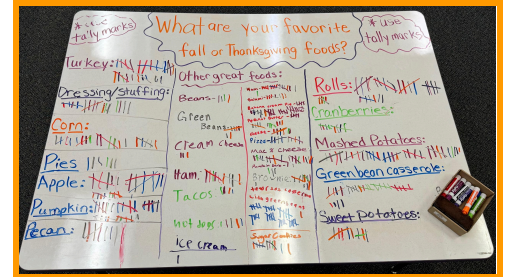 * use
tally marks
What are your favorite
fall or Thanksgiving foods?
* use
tally marks
Turkey:
Dressing/stuffing:
Corn:
Pies
Apple:
Pumpkin:
Pecan:
Other great foods:
Beans-
Green
Beans-
Cream Cheese
Ham:
Tacos
Hot Dogs:
ice cream
Pizza-
Mac & cheese
Brownie
Sugar Cookies
Rolls:
Cranberries:
Mashed Potatoes:
Greenbean casserole:
Sweet potatoes: